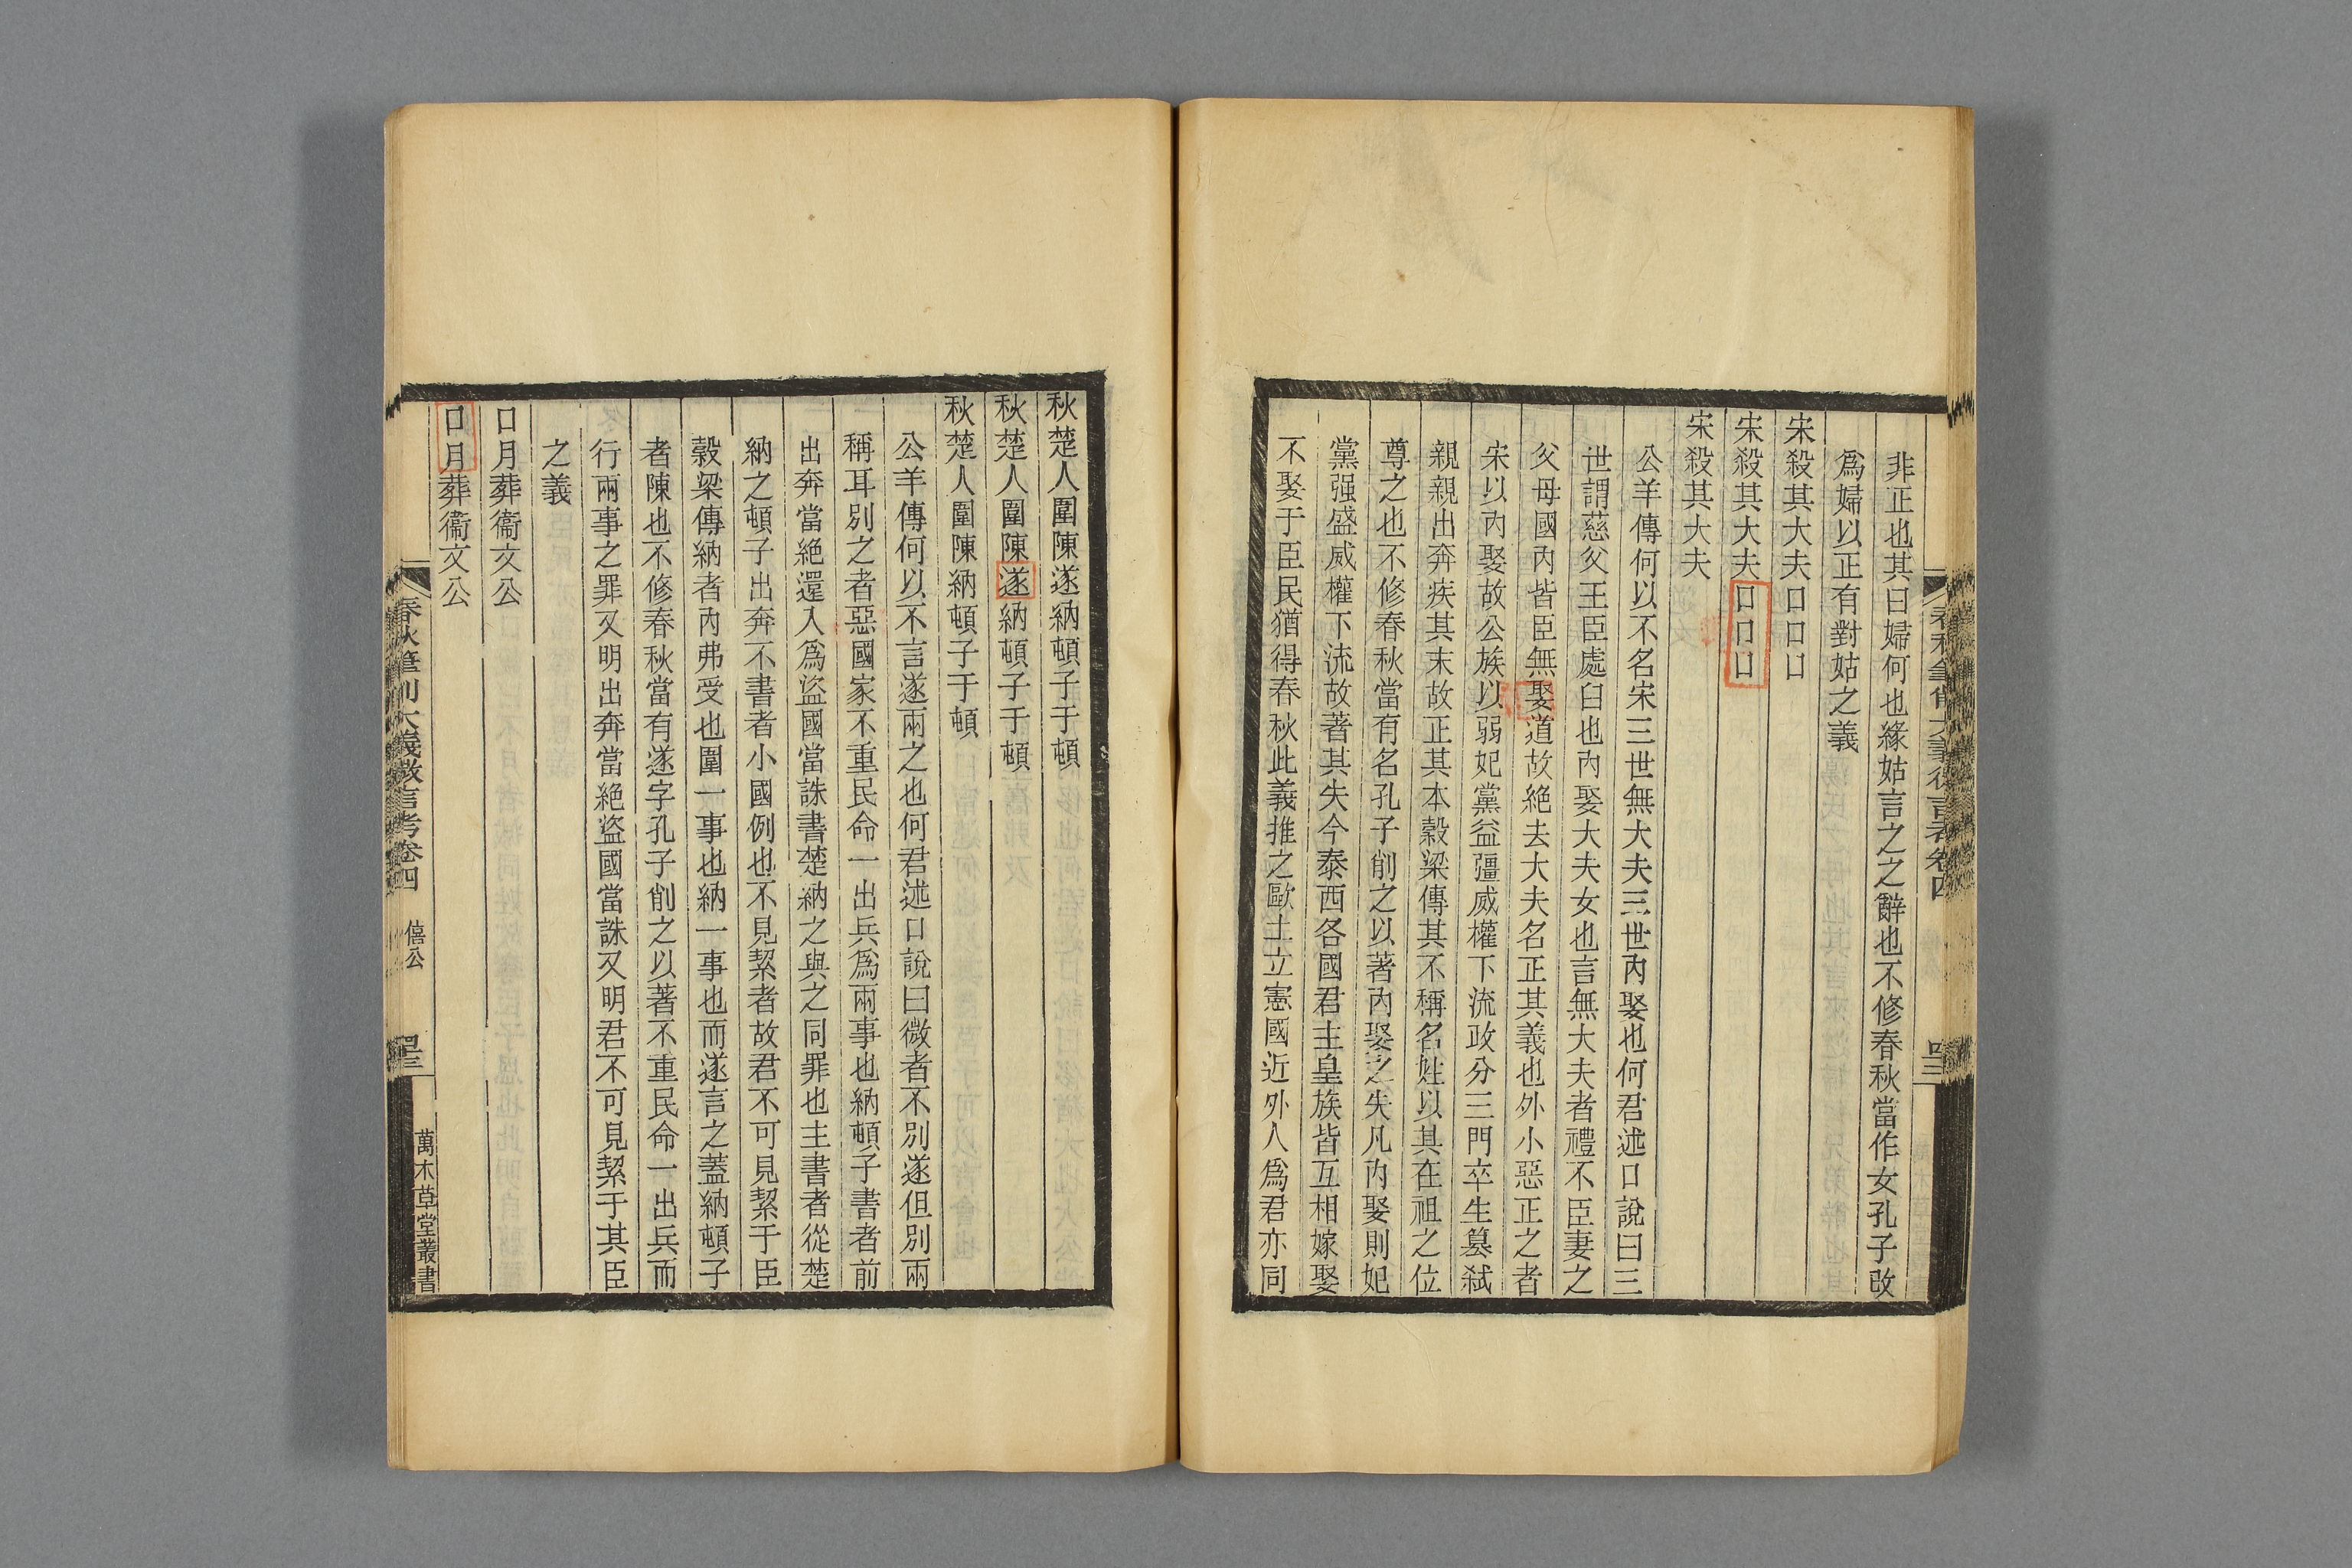 非正也其曰婦何也緣姑言之之辭也不修春秋當作女孔子改
爲婦以正有對姑之義
宋殺其大夫口口口
宋殺其大夫口口口
宋殺其大夫
公羊傳何以不名宋三世無大夫三世內娶也何君述口說曰三
世謂慈父王臣處臼也內娶大夫女也言無大夫者禮不臣妻之
父母國內皆臣無娶道故絕去大夫名正其義也外小惡正之者
宋以內娶故公族以弱妃黨益彊威權下流政分三門卒生篡弑
親親出奔疾其末故正其本穀梁傳其不稱名姓以其在祖之位
尊之也不修春秋當有名孔子削之以著內娶之失凡內娶則妃
黨强盛威權下流故著其失今泰西各國君主皇族皆互相嫁娶
不娶于臣民猶得春秋此義推之歐土立憲國近外人爲君亦同
秋楚人圍陳遂納頓子于頓
秋楚人圍陳遂納頓子于頓
秋楚人圍陳納頓子于頓
公羊傳何以不言遂兩之也何君述口說曰微者不別遂但別兩
稱耳別之者惡國家不重民命一出兵爲兩事也納頓子書者前
出奔當絕還入爲盜國當誅書楚納之與之同罪也主書者從楚
納之頓子出奔不書者小國例也不見絜者故君不可見絜于臣
穀梁傳納者內弗受也圍一事也納一事也而遂言之蓋納頓子
者陳也不修春秋當有遂字孔子削之以著不重民命一出兵而
行兩事之罪又明出奔當絕盜國當誅又明君不可見絜于其臣
之義
口月葬衞文公
口月葬衞文公
春秋筆削大義微言考卷四
僖公
萬木草堂叢書